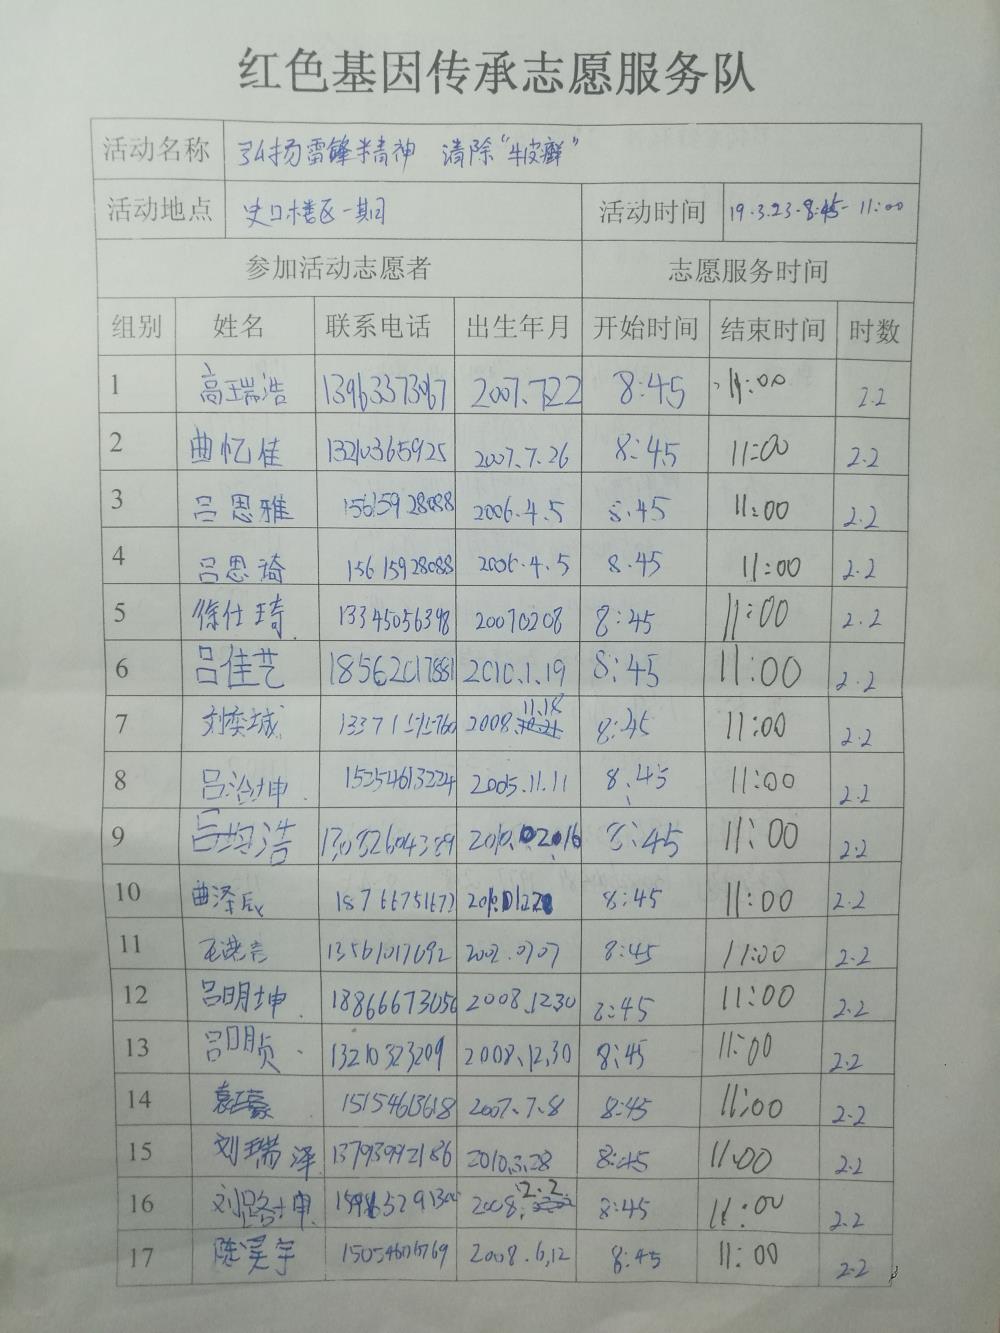 红色基因传承志愿服务队
活动名称 弘扬雷锋精神 清除“牛皮癣”
活动地点 史口楼区一期 活动时间 19.3.23.8:45-11:00
参加活动志愿者 志愿服务时间
组别 姓名 联系电话 出生年月 开始时间 结束时间 时数
1 高瑞浩 13963373067 2007.7.22 8:45 11:00 2.2
2 曲忆佳 13210365925 2007.7.26 8:45 11:00 2.2
3 吕思雅 15615928088 2006.4.5 8:45 11:00 2.2
4 吕思琦 15615928088 2006.4.5 8:45 11:00 2.2
5 徐仕琦 13345056398 20070208 8:45 11:00 2.2
6 吕佳艺 18562017881 2010.1.19 8:45 11:00 2.2
7 刘奕城 2008.11.18 8:45 11:00 2.2
8 吕治坤 15254613224 2005.11.11 8:45 11:00 2.2
9 吕均浩 8:45 11:00 2.2
10 曲泽辰 18766751672 8:45 11:00 2.2
11 13561017692 8:45 11:00 2.2
12 吕明坤 18866673056 2008.12.30 8:45 11:00 2.2
13 吕明贞 13210323209 2008.12.30 8:45 11:00 2.2
14 15154613618 2007.7.8 8:45 11:00 2.2
15 刘瑞泽 13793992186 2010.3.28 8:45 11:00 2.2
16 刘路坤 2008.2.2 8:45 11:00 2.2
17 陈昊宇 15054606769 2008.6.12 8:45 11:00 2.2